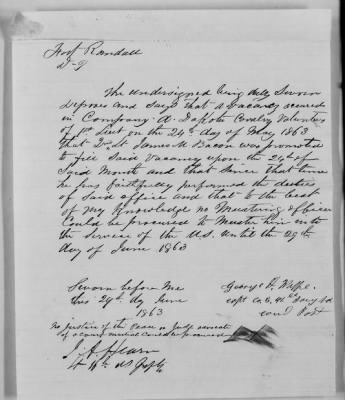 Fort Randall
D-T
The undersigned being duly Sworn
deposes and Says that a Vacancy occured
in Company A. Dakota Cavalry Volunteers
of 1st Lieut on the 24th day of May 1863
that 2n Lt James M Bacon was promoted
to fill Said Vacancy upon the 24th of
Said Month and that Since that time
he has faithfully performed the duties
of Said office and that to the best
of My Knowledge no Mustering officer
Could be procured to Muster him into
the Service of the U.S. until the 29th
day of June 1863
Sworn before Me
this 29th day June
1863
George
Capt Co. 41
Post
No Justice of the Peace or Judge
of a could be procured
J. A. Hearn
Lt